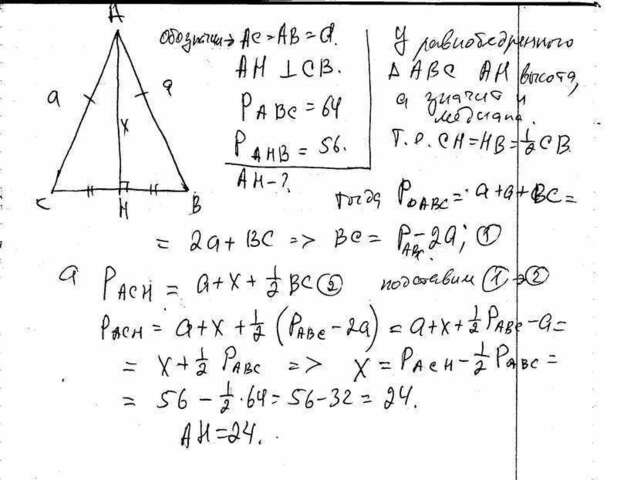 A
a
a
x
C
H
B
Обозначим AC = AB = a.
AH ⊥ CB.
P ABC = 64
P AHB = 56.
AH - ?
У равнобедренного
Δ ABC AH высота,
а значит и
медиана.
Т.о. CH = HB = 1/2 CB.
тогда P ΔABC = a + a + BC =
= 2a + BC => BC = P ABC - 2a; ①
а P ACH = a + x + 1/2 BC ② подставим ① → ②
P ACH = a + x + 1/2 (P ABC - 2a) = a + x + 1/2 P ABC - a =
= x + 1/2 P ABC => x = P ACH - 1/2 P ABC =
= 56 - 1/2 · 64 = 56 - 32 = 24.
AH = 24.